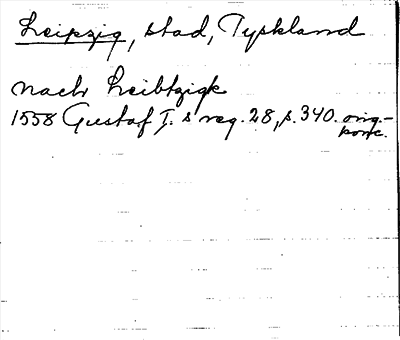 Leipzig, stad, Tyskland
nach Leibtzigk
1558 Gustaf I.s reg. 28, s. 340. orig.-
konc.